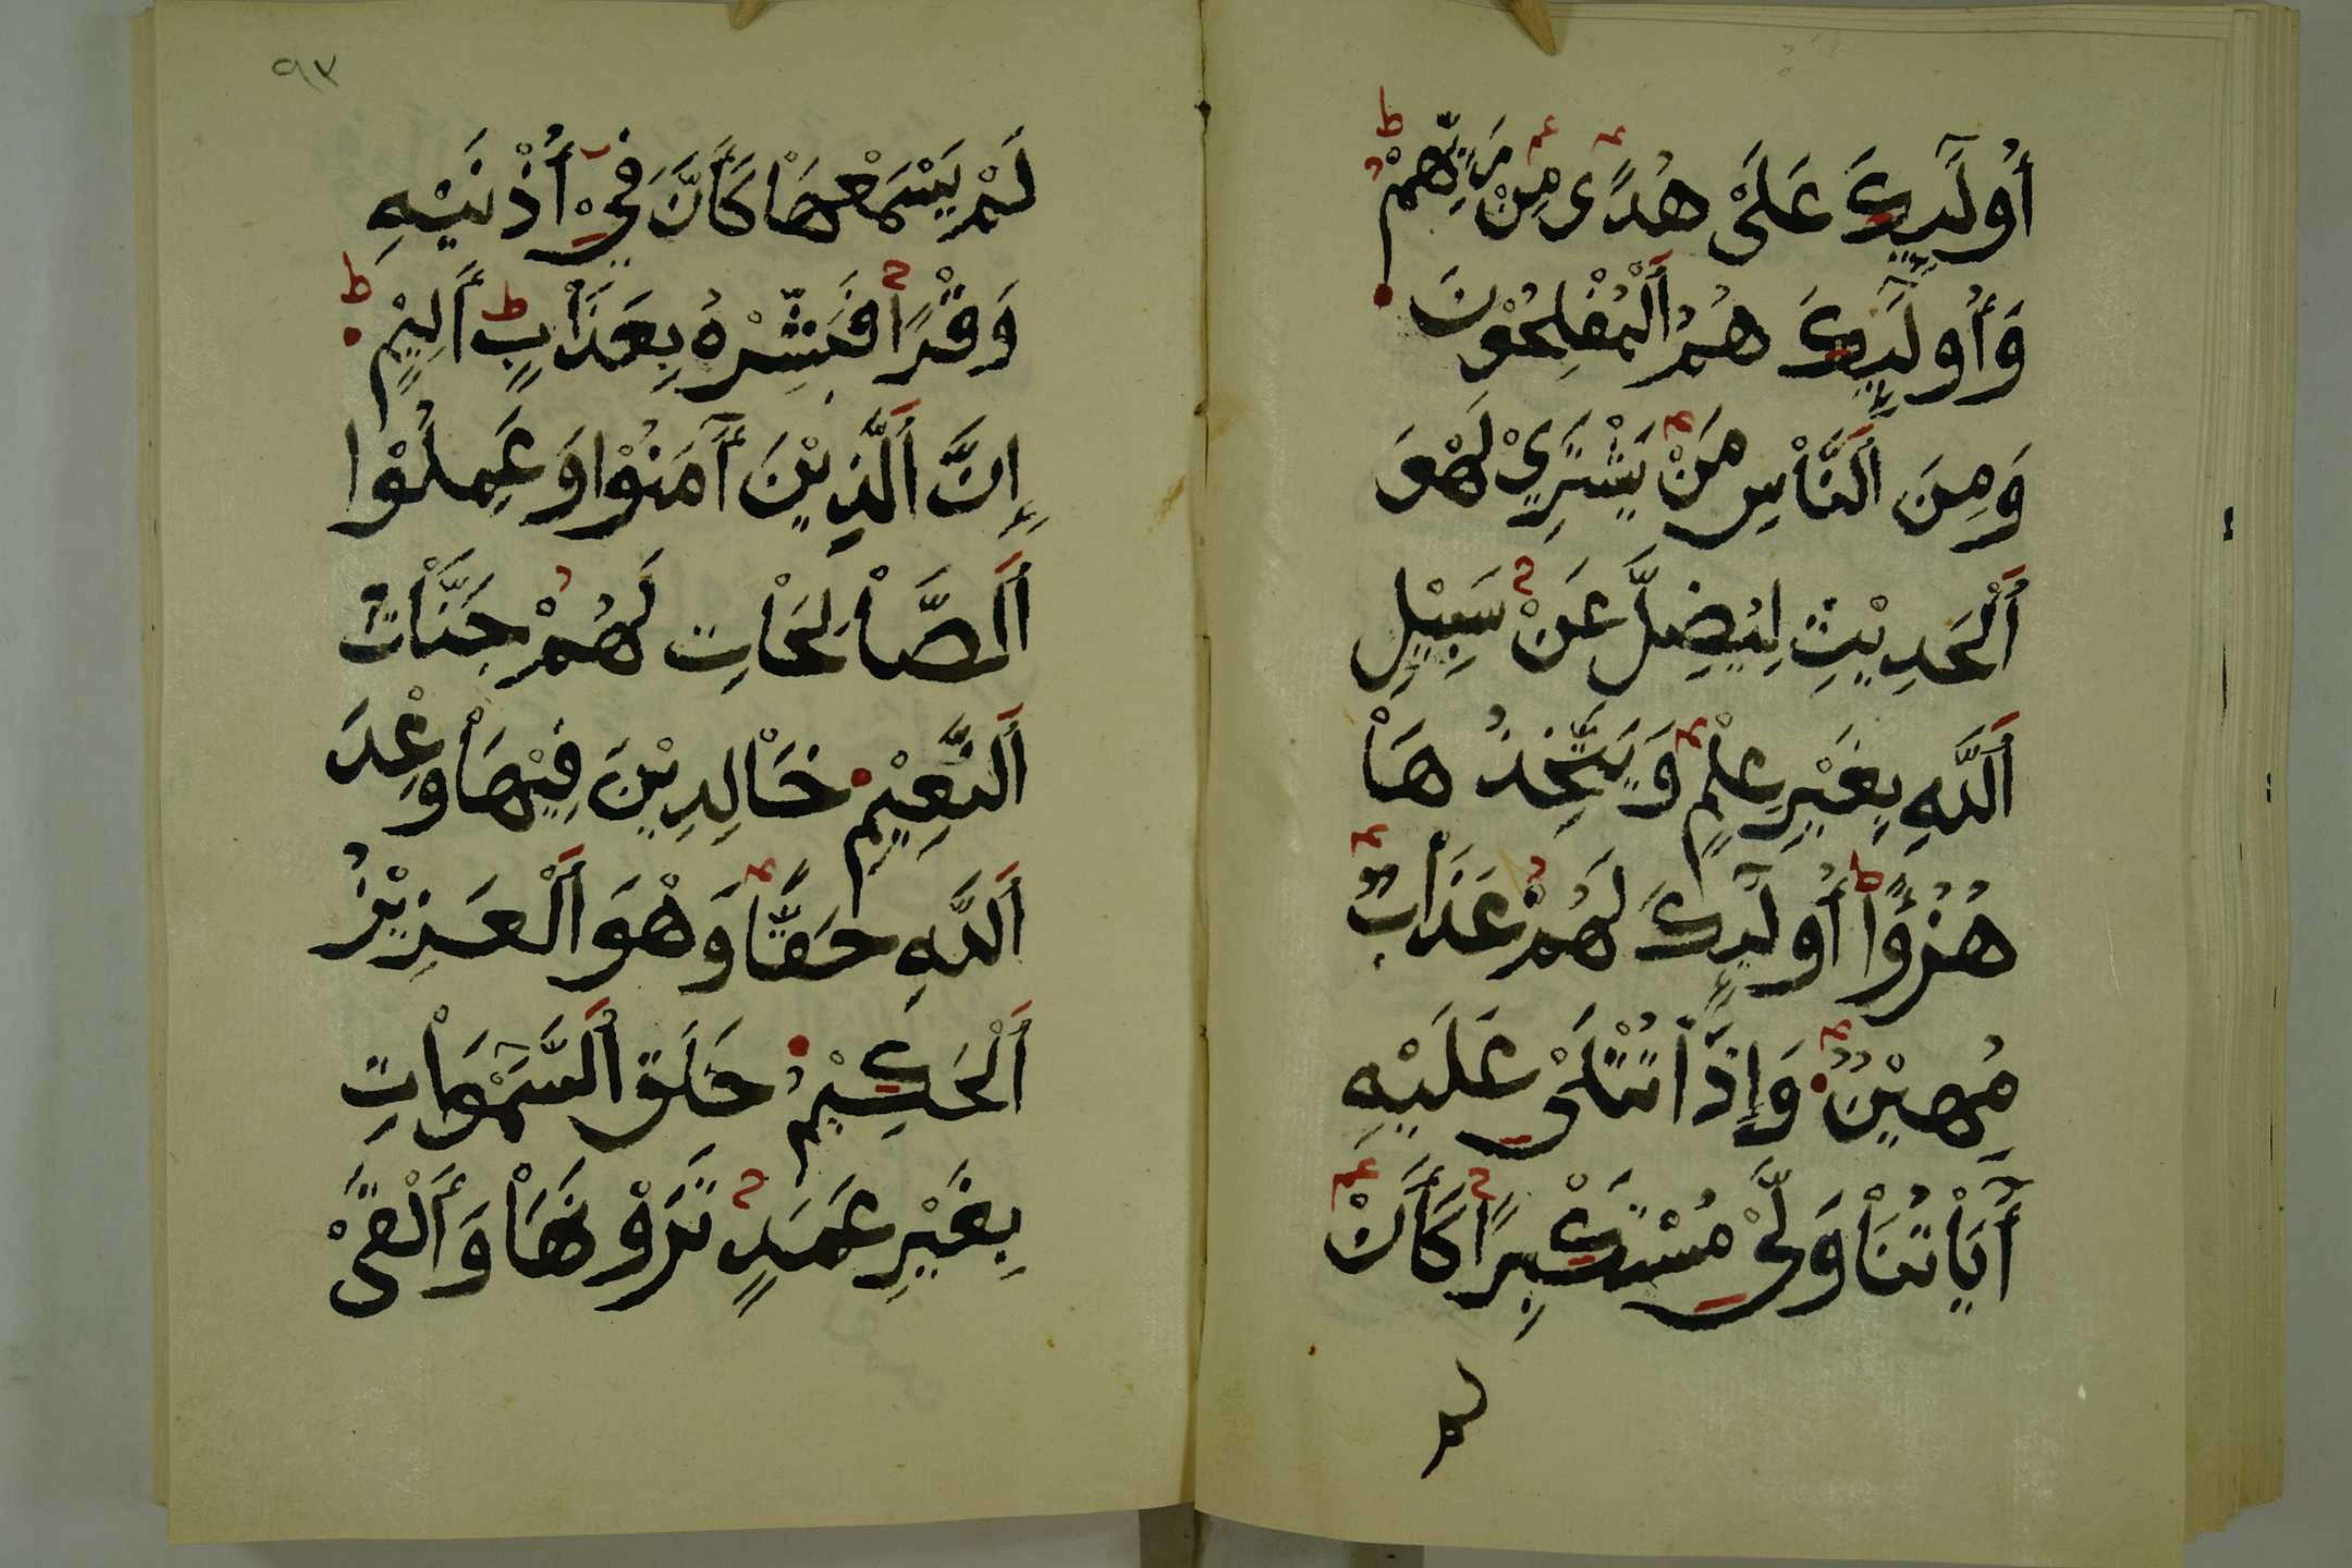 أُولَٰئِكَ عَلَىٰ هُدًى مِنْ رَبِّهِمْ
وَأُولَٰئِكَ هُمُ الْمُفْلِحُوْنَ
وَمِنَ النَّاسِ مَنْ يَشْتَرِيْ لَهْوَ
الْحَدِيْثِ لِيُضِلَّ عَنْ سَبِيْلِ
اللَّهِ بِغَيْرِ عِلْمٍ وَيَتَّخِذُهَا
هُزُؤًا أُولَٰئِكَ لَهُمْ عَذَابٌ
مُهِيْنٌ وَإِذَا تُتْلَىٰ عَلَيْهِ
أٓيَاتُنَا وَلَّىٰ مُسْتَكْبِرًا كَأَنْ
لم
٩٣
لَمْ يَسْمَعْهَا كَأَنَّ فِيْ أُذْنَيْهِ
وَقْرًا فَبَشِّرْهُ بِعَذَابٍ أَلِيْمٍ
إِنَّ الَّذِيْنَ أٓمَنُوْا وَعَمِلُوْا
الصَّالِحَاتِ لَهُمْ جَنَّاتُ
النَّعِيْمِ خَالِدِيْنَ فِيْهَا وَعْدَ
اللَّهِ حَقًّا وَهْوَ الْعَزِيْزُ
الْحَكِيْمُ خَلَقَ السَّمَٰوَاتِ
بِغَيْرِ عَمَدٍ تَرَوْنَهَا وَأَلْقَىٰ